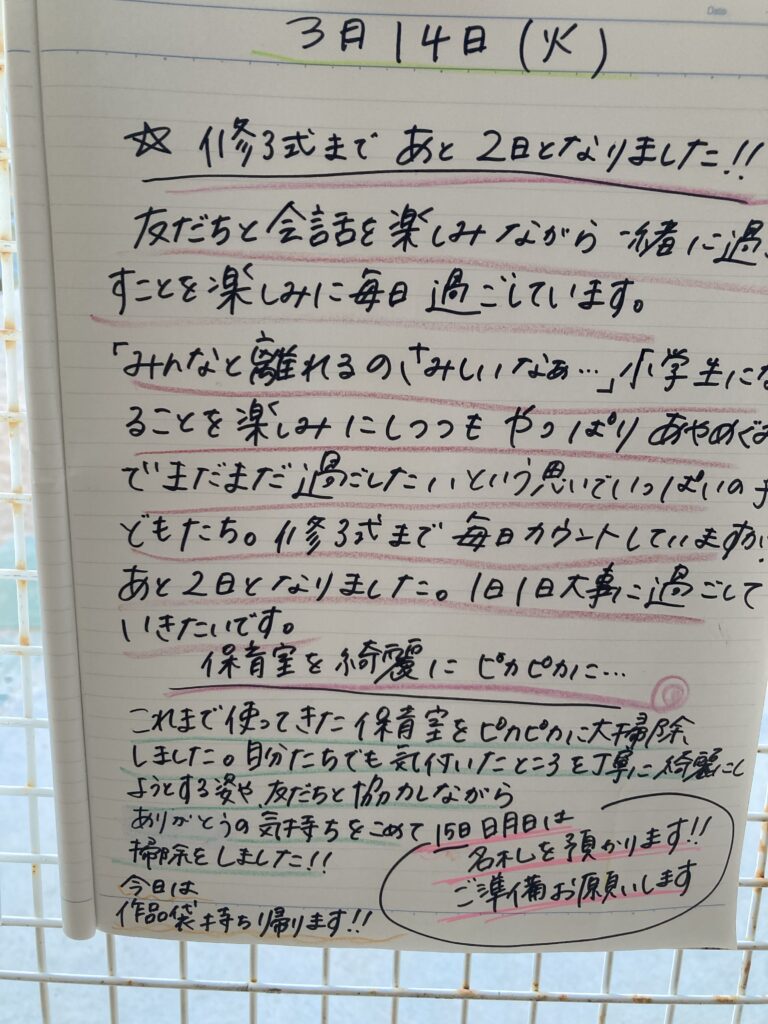 Date
3月14日(火)
☆ 修了式まで あと 2日となりました!!
友だちと会話を楽しみながら 一緒に過
すことを楽しみに毎日 過ごしています。
「みんなと離れるのさみしいなぁ…」小学生にな
ることを楽しみにしつつも やっぱり あやめぐみ
でまだまだ過ごしたいという思いでいっぱいの子
どもたち。修了式まで毎日カウントしていますが
あと2日となりました。1日1日大事に過ごして
いきたいです。
保育室を綺麗に ピカピカに…
これまで使ってきた保育室をピカピカに大掃除
しました。自分たちでも気付いたところを丁寧に綺麗にし
ようとする姿や、友だちと協力しながら
ありがとうの気持ちをこめて
掃除をしました!!
今日は
作品袋持ち帰ります!!
15日 は
名札を預かります!!
ご準備お願いします